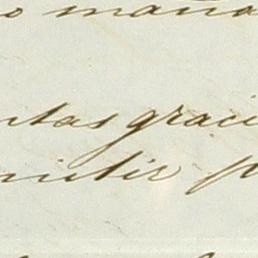 o maña
ntas graci
mitir p